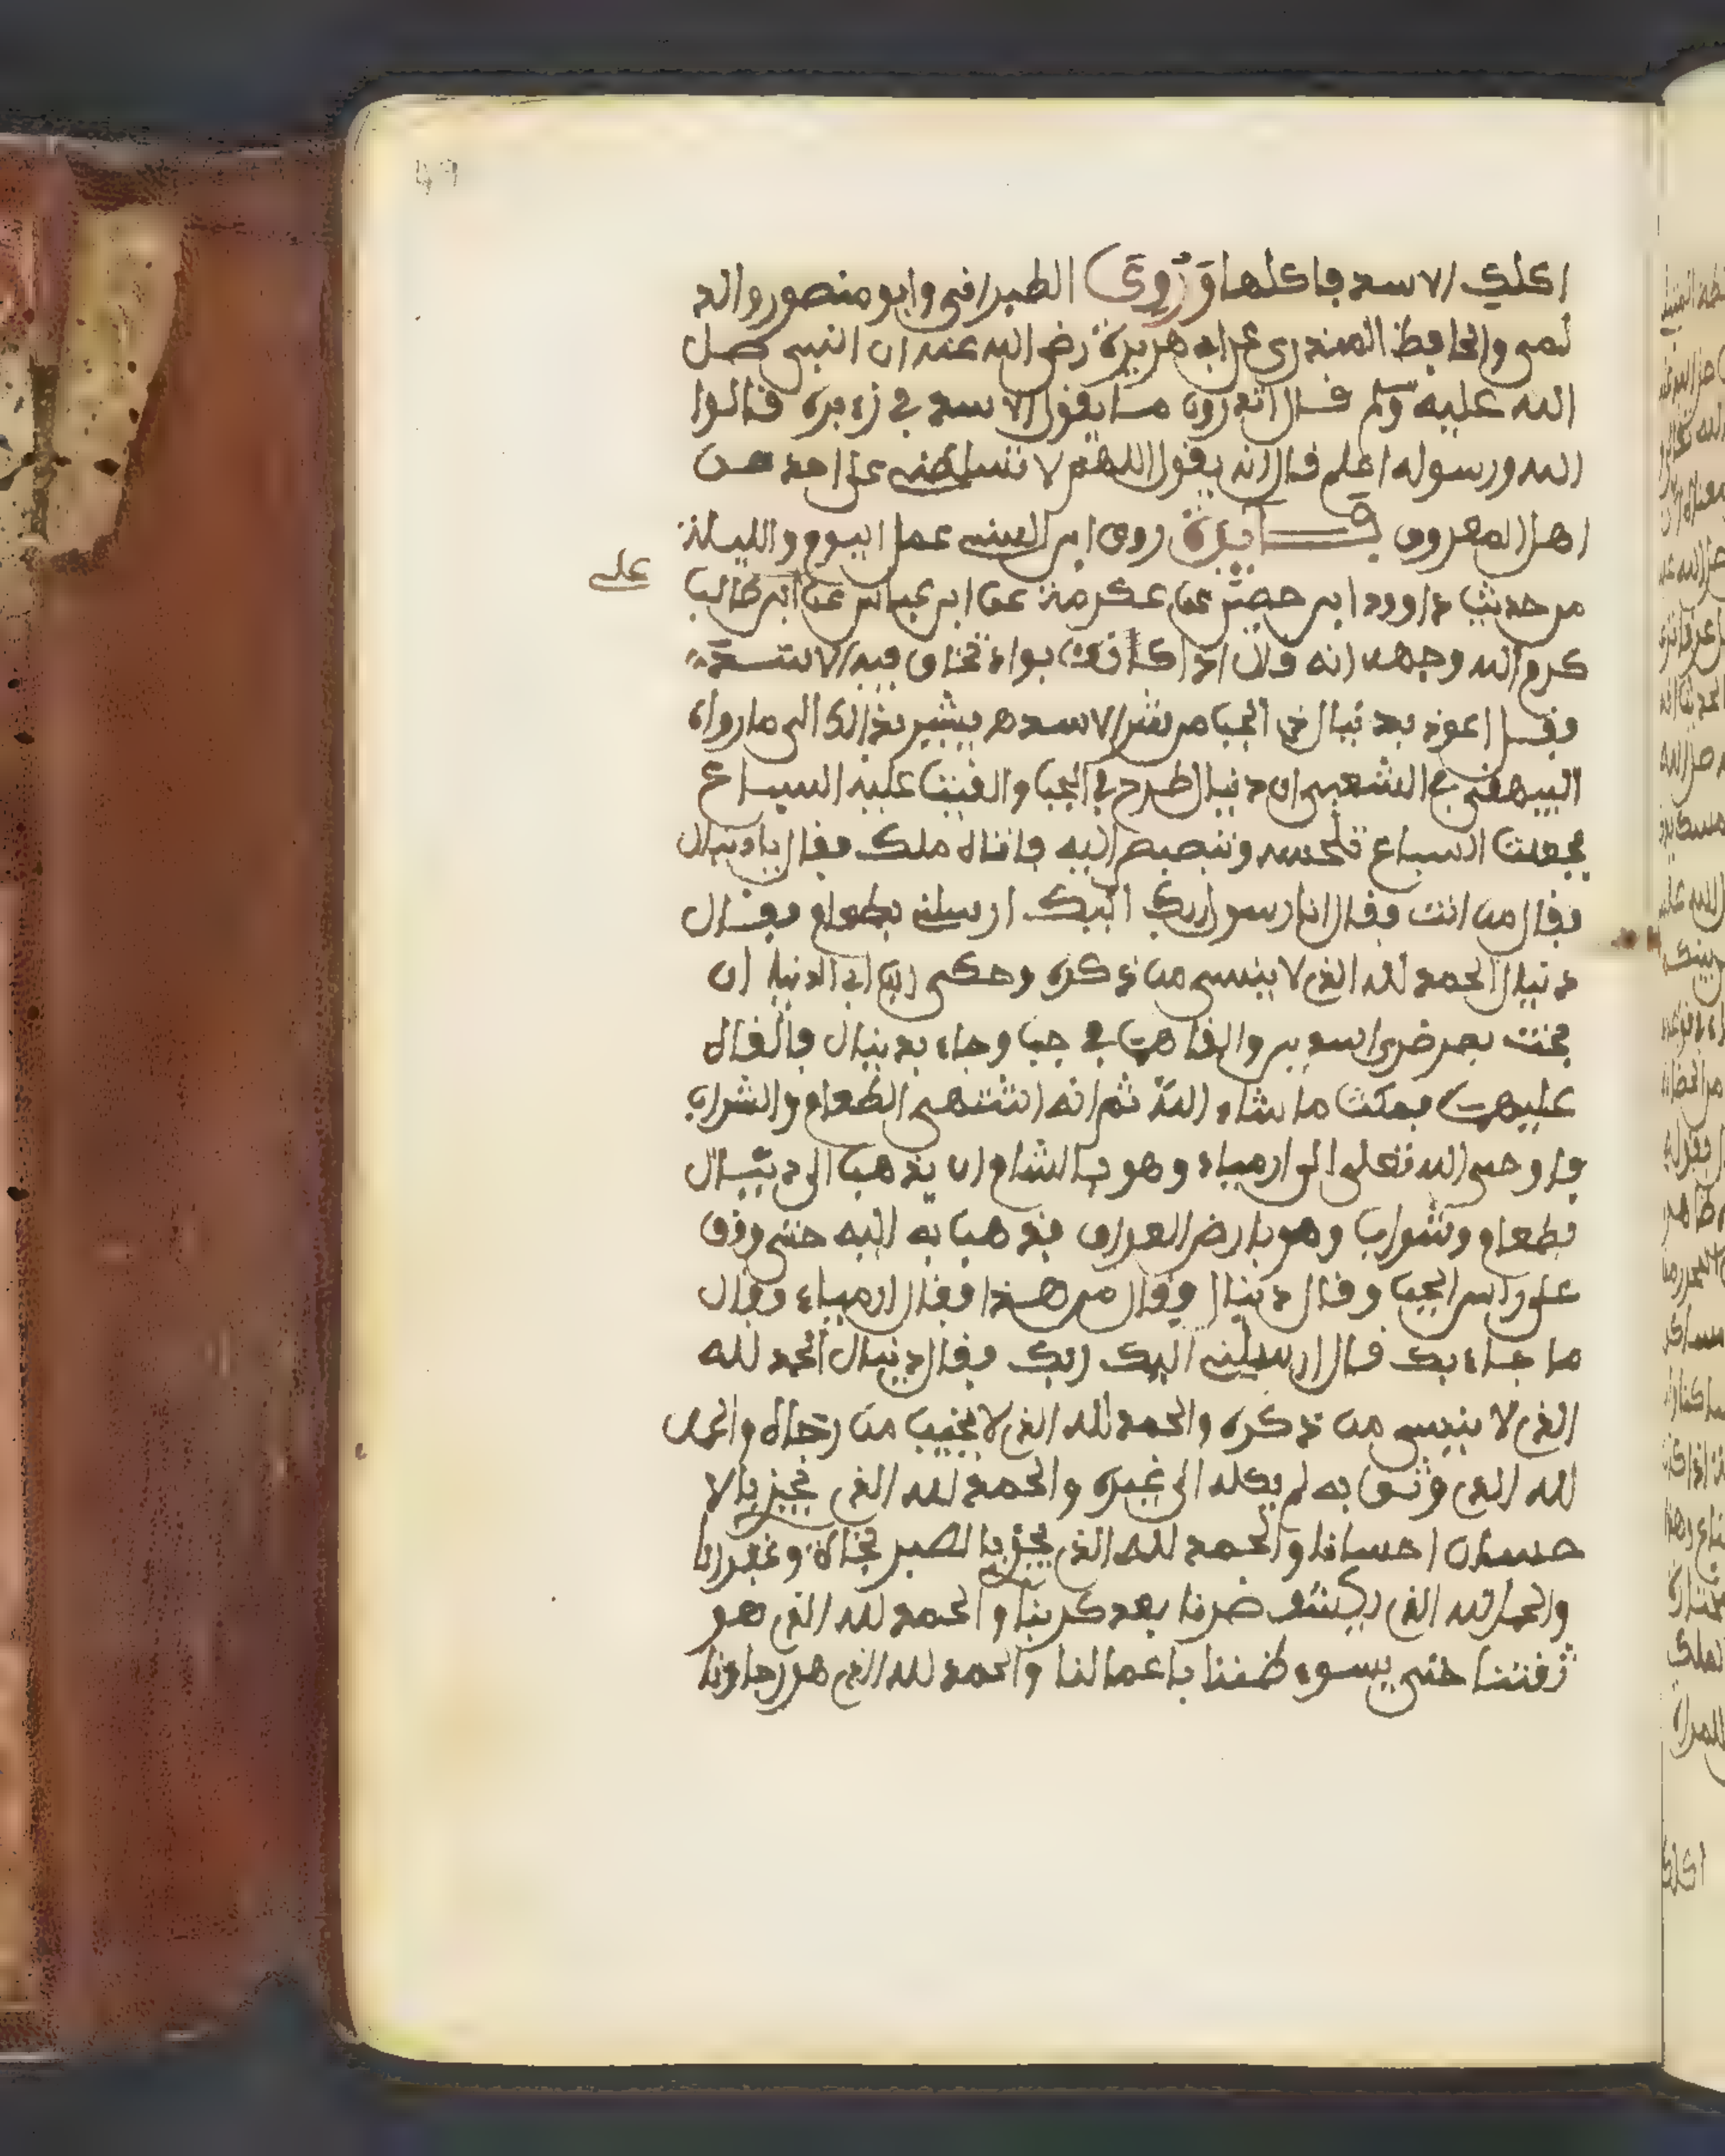 اكلك الاسد فاكلها وَرُوِىَ الطبرانى وابو منصور والد
لمى والحافظ المنذرى عن ابى هريرة رضى الله عنه ان النبى صل
الله عليه وسلم فال اتدرون ما يقول الاسد في زءيره قالوا
الله ورسوله اعلم قال انه يقول اللهم لا تسلطنى على احد من
اهل المعروف فايدة روى ابن السنى عمل اليوم والليلة
على
من حديث داوود ابن حصين عن عكرمة عن ابن عباس عن ابى طالب
كرم الله وجهه انه قال اذا كانت بواد تخاف فيه الاسد
فقل اعوذ بدنيال في الجب من شر الاسد هـ يشير بذالك الى ما رواه
البيهقى في الشعب ان دنيال طرح في الجب والقيت عليه السباع
فجعلت السباع تلحسه وتبصبص اليه فاتاه ملك فقال يا دنيال
فقال من انت فقال انا رسول ربك اليك ارسلنى بطعام فقال
دنيال الحمد لله الذى لا ينسى من ذكره وحكى ابن ابى الدنيا ان
بخت نصر ضرى اسدين والقاهما في جب وجاء بدنيال فالقاه
عليهما فمكث ما شاء الله ثم انه اشتهى الطعام والشراب
فاوحى الله تعلى الى ارمياء وهو بالشام ان يذهب الى دنيال
بطعام وشراب وهو بارض العراق فذهب به اليه حتى وقف
على راس الجب وقال دنيال فقال من هذا فقال ارمياء فقال
ما جاء بك قال ارسلنى اليك ربك فقال دنيال الحمد لله
الذى لا ينسى من ذكره والحمد لله الذى لا يخيب من رجاه والحمد
لله الذى وثق به لم يكله الى غيره والحمد لله الذى يجزى بالا
حسان احسانا والحمد لله الذى يجزى بالصبر نجاة وغفرانا
والحمد لله الذى يكشف ضرنا بعد كربنا والحمد لله الذى هو
ثقتنا حتى يسوء ظننا باعمالنا والحمد لله الذى هو رجاونا